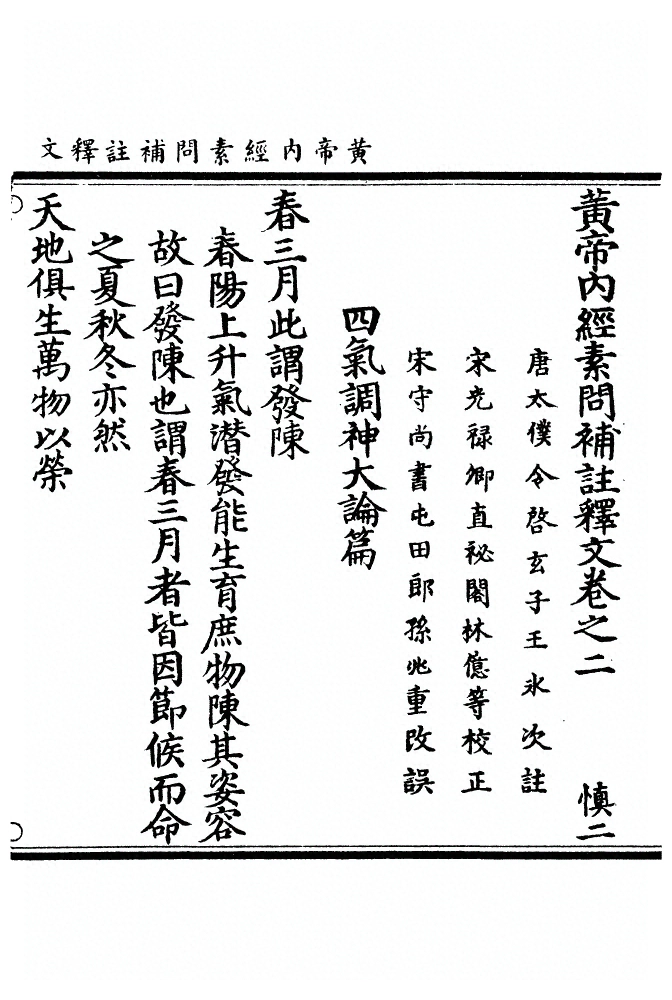 黄帝内經素問補註釋文
黃帝內經素問補註釋文卷之二 慎二
唐太僕令啓玄子王氷次註
宋光禄卿直祕閣林億等校正
宋守尚書屯田郎孫兆重改誤
四氣調神大論篇
春三月此謂發陳
春陽上升氣潜發能生育庶物陳其姿容
故曰發陳也謂春三月者皆因節候而命
之夏秋冬亦然
天地俱生萬物以榮